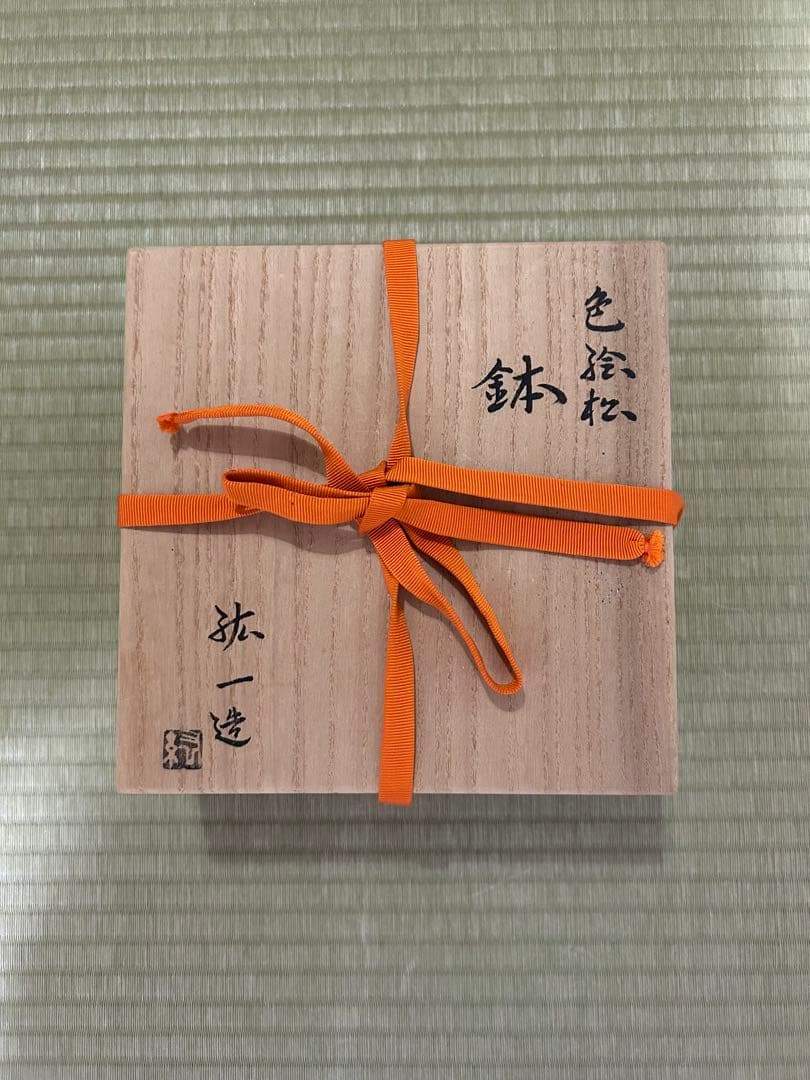 色絵松
鉢
紘一造